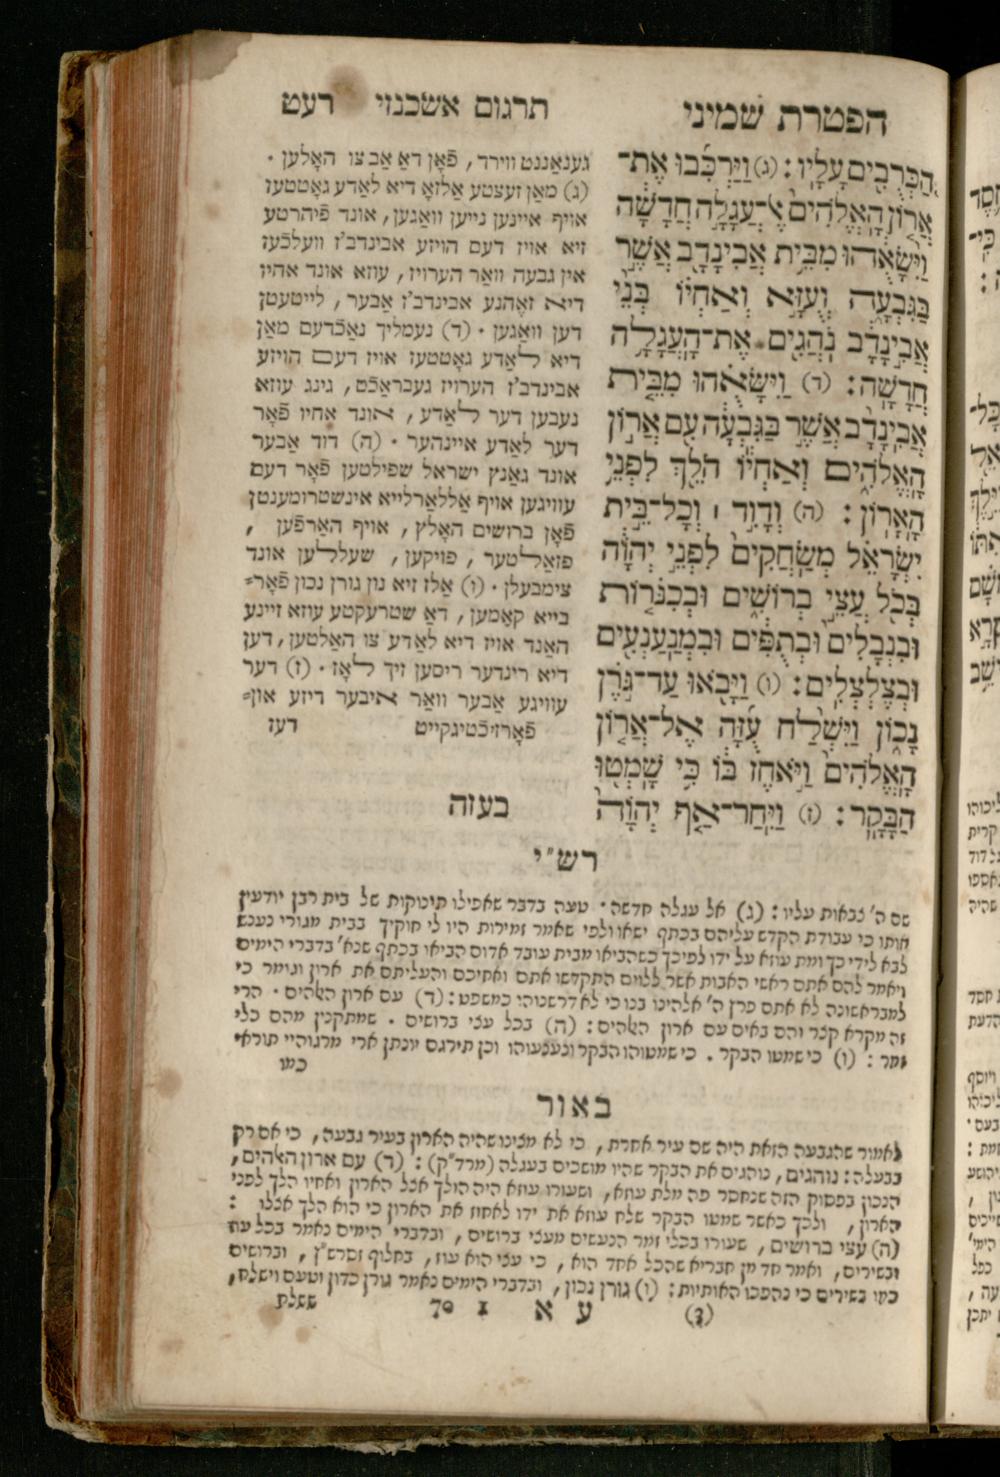 הפטרת שמיני
תרגום אשכנזי רעט
הַכְּרֻבִים עָלָיו׃ (ג) וַיַּרְכִּבוּ אֶת־
אֲרוֹן הָאֱלֹהִים אֶל־עֲגָלָה חֲדָשָׁה
וַיִּשָּׂאֻהוּ מִבֵּית אֲבִינָדָב אֲשֶׁר
בַּגִּבְעָה וְעֻזָּא וְאַחְיוֹ בְּנֵי
אֲבִינָדָב נֹהֲגִים אֶת־הָעֲגָלָה
חֲדָשָׁה׃ (ד) וַיִּשָּׂאֻהוּ מִבֵּית
אֲבִינָדָב אֲשֶׁר בַּגִּבְעָה עִם אֲרוֹן
הָאֱלֹהִים וְאַחְיוֹ הֹלֵךְ לִפְנֵי
הָאָרוֹן׃ (ה) וְדָוִד ׀ וְכָל־בֵּית
יִשְׂרָאֵל מְשַׂחֲקִים לִפְנֵי יְהֹוָה
בְּכֹל עֲצֵי בְרוֹשִׁים וּבְכִנֹּרוֹת
וּבִנְבָלִים וּבְתֻפִּים וּבִמְנַעַנְעִים
וּבְצֶלְצְלִים׃ (ו) וַיָּבֹאוּ עַד־גֹּרֶן
נָכוֹן וַיִּשְׁלַח עֻזָּה אֶל־אֲרוֹן
הָאֱלֹהִים וַיֹּאחֶז בּוֹ כִּי שָׁמְטוּ
הַבָּקָר׃ (ז) וַיִּחַר־אַף יְהֹוָה
בעזה
גענאַננט ווירד, פֿאָן דאַ אַב צו האָלען .
(ג) מאַן זעצטע אַלזאָ דיא לאַדע גאָטטעז
אויף איינען נייען וואַגען, אונד פֿיהרטע
זיא אויז דעם הויזע אבינדב'ז וועלכֿעז
אין גבעה וואַר הערויז, עוזא אונד אחיו
דיא זאָהנע אבינדב'ז אַבער, לייטעטן
דען וואַגען . (ד) נעמליך נאַכֿדעם מאַן
דיא לאַדע גאָטטעז אויז דעם הויזע
אבינדב'ז הערויז געבראַכֿט, גינג עוזא
נעבען דער לאַדע, אונד אחיו פֿאָר
דער לאַדע איינהער . (ה) דוד אַבער
אונד גאַנץ ישראל שפילטען פֿאָר דעם
עוויגען אויף אַללאַרלייא אינשטרומענטן
פֿאָן ברושים האָלץ, אויף האַרפֿען ,
פזאַלטער, פויקען, שעללען אונד
צימבעלן . (ו) אַלז זיא נון גורן נכון פֿאָר=
בייא קאַמען, דאַ שטרעקטע עוזא זיינע
האַנד אויז דיא לאַדע צו האַלטען, דען
דיא רינדער ריסען זיך לאָז . (ז) דער
עוויגע אַבער וואַר איבער דיזע און=
פֿאָרזיכֿטיגקייט דעז
רש"י
שם ה' צבאות עליו : (ג) אל עגלה חדשה . טעה בדבר שאפילו תינוקות של בית רבן יודעין
אותו כי עבודת הקדש עליהם בכתף ישאו ולפי שאמר זמירות היו לי חוקיך בבית מגורי נענש
לבא לידי כך ומת עוזא על ידו לפיכך כשהביאו מבית עובד אדום הביאו בכתף שנא' בדברי הימים
ויאמר להם אתם ראשי האבות אשר ללוים התקדשו אתם ואחיכם והעליתם את ארון וגומר כי
למבראשונה לא אתם פרץ ה' אלהינו בנו כי לא דרשנוהו כמשפט : (ד) עם ארון האלהים . הרי
זה מקרא קצר והם באים עם ארון האלהים : (ה) בכל עצי ברושים . שמתקנין מהם כלי
זמר : (ו) כי שמטו הבקר . כי שמטוהו הבקר ונענעוהו וכן תירגם יונתן ארי מרגוהיי תוראי
כמו
באור
לאמור שהגבעה הזאת היה שם עיר אחרת, כי לא מצינו שהיה הארון בעיר גבעה, כי אם רק
בבעלה : נוהגים, נוהגים את הבקר שהיו מושכים בעגלה (מרד"ק) : (ד) עם ארון האלהים,
הנכון בפסוק הזה שנחסר פה מלת עוזא, ושעורו עוזא היה הולך אצל הארון ואחיו הלך לפני
הארון, ולכך כאשר שמטו הבקר שלח עוזא את ידו לאחוז את הארון כי הוא הלך אצלו :
(ה) עצי ברושים, שעורו בכלי זמר הנעשים מעצי ברושים, ובדברי הימים נאמר בכל עוז
ובשירים, ואמר חד מן חבריא שהכל אחד הוא, כי עצי הוא עוז, בחלוף זסרש"ץ, וברושים
כמו בשירים כי נהפכו האותיות : (ו) גורן נכון, ובדברי הימים נאמר גורן כדון וטעם וישלח,
(ג) ע א 1 70 ששלח